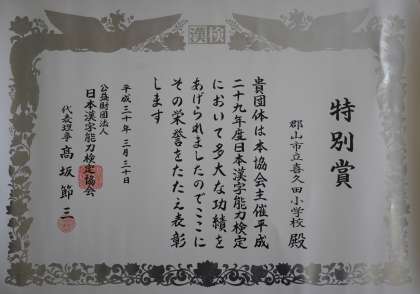 漢検
特別賞
郡山市立喜久田小学校 殿
貴団体は本協会主催平成
二十九年度日本漢字能力検定
において多大な功績を
あげられましたのでここに
その栄誉をたたえ表彰
します
平成三十年 三月三十日
公益財団法人
日本漢字能力検定協会
代表理事 髙坂 節三